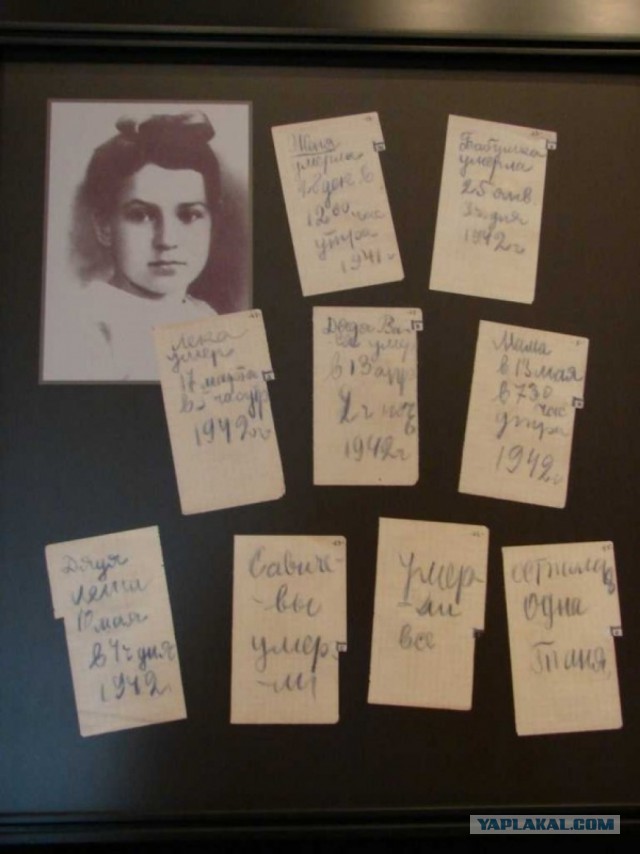 Женя
умерла
28 дек в
12 00 час
утра
1941 г
Бабушка
умерла
25 янв.
3ч дня
1942 г
Лека
умер
17 марта
в 5 час утр
1942 г
Дядя Ва
ся умер
в 13 апр
2 ч ноч
1942 г
Мама
в 13 мая
в 7 30
час
утра
1942 г
Дядя
Леша
10 мая
в 4ч дня
1942
Савиче-
-вы
умер
-ли
Умер
-ли
все
осталась
одна
Таня
YAPLAKAL.COM